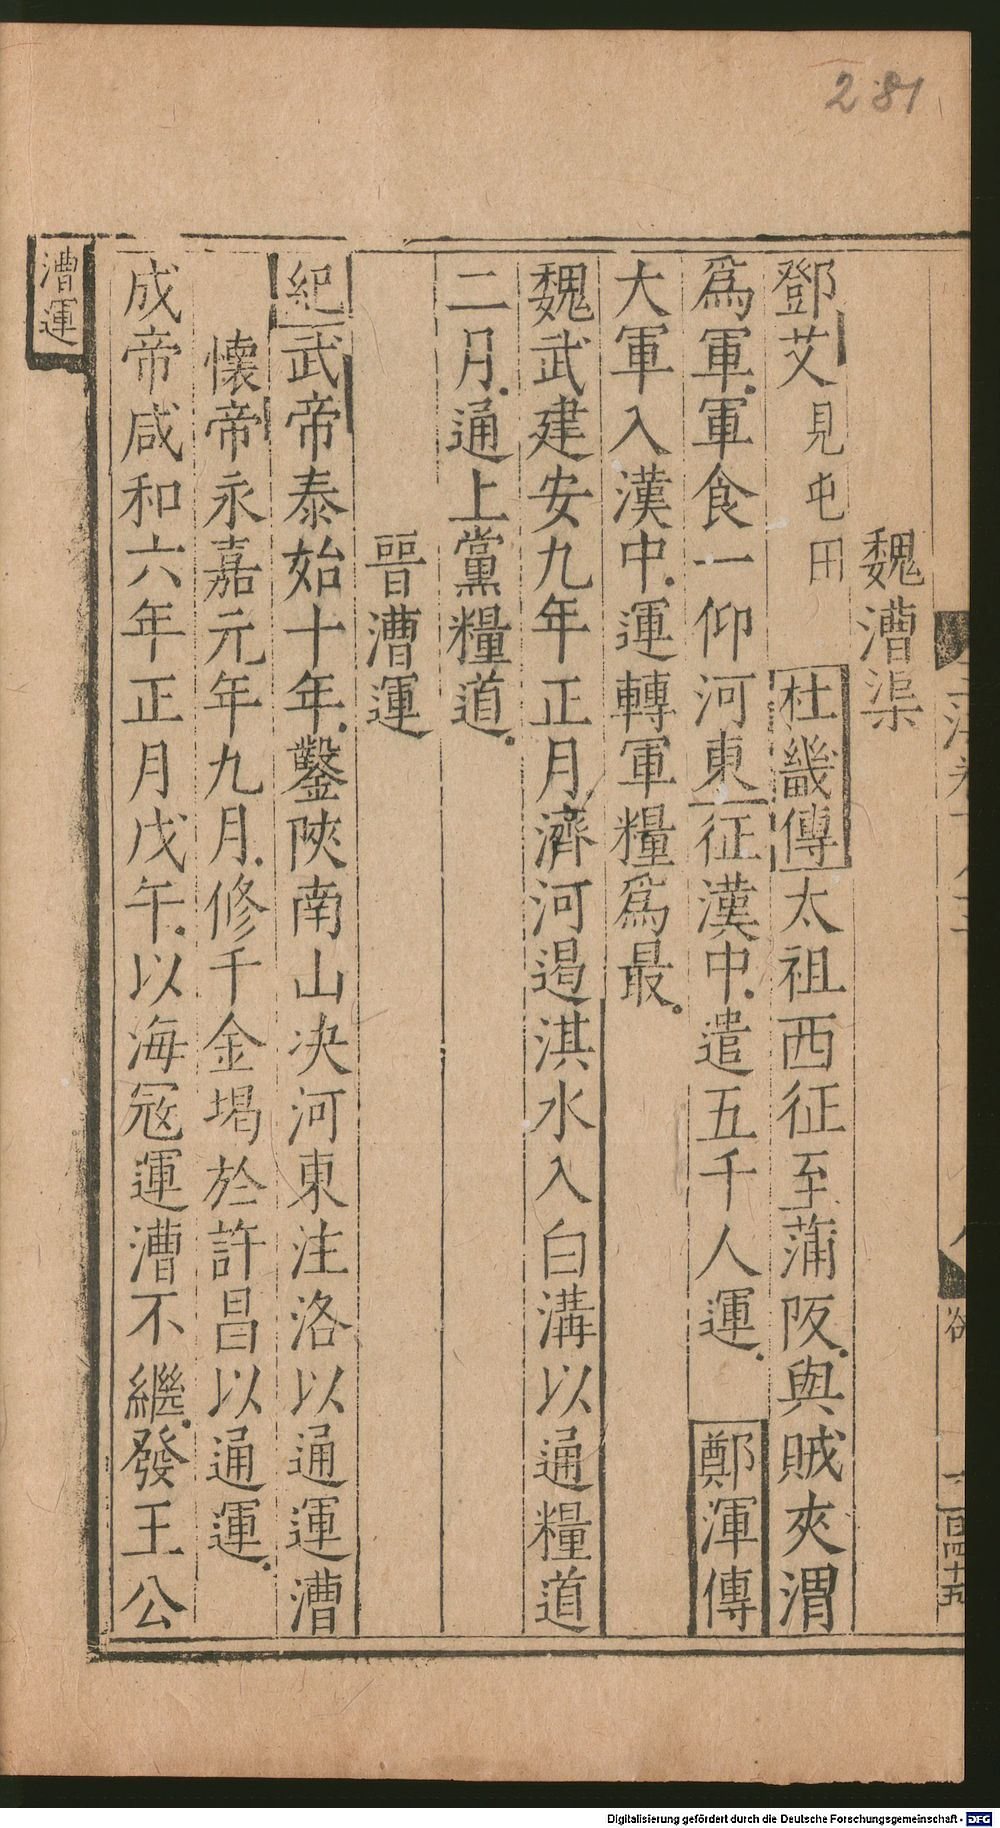 281
魏漕渠
鄧艾見屯田 杜畿傳太祖西征至蒲阪與賊夾渭
爲軍軍食一仰河東征漢中遣五千人運 鄭渾傳
大軍入漢中運轉軍糧爲最
魏武建安九年正月濟河遏淇水入白溝以通糧道
二月通上黨糧道
晉漕運
紀武帝泰始十年鑿陝南山決河東注洛以通運漕
懷帝永嘉元年九月修千金堨於許昌以通運
成帝咸和六年正月戊午以海寇運漕不繼發王公
漕運
一百四十五
Digitalisierung gefördert durch die Deutsche Forschungsgemeinschaft - DFG